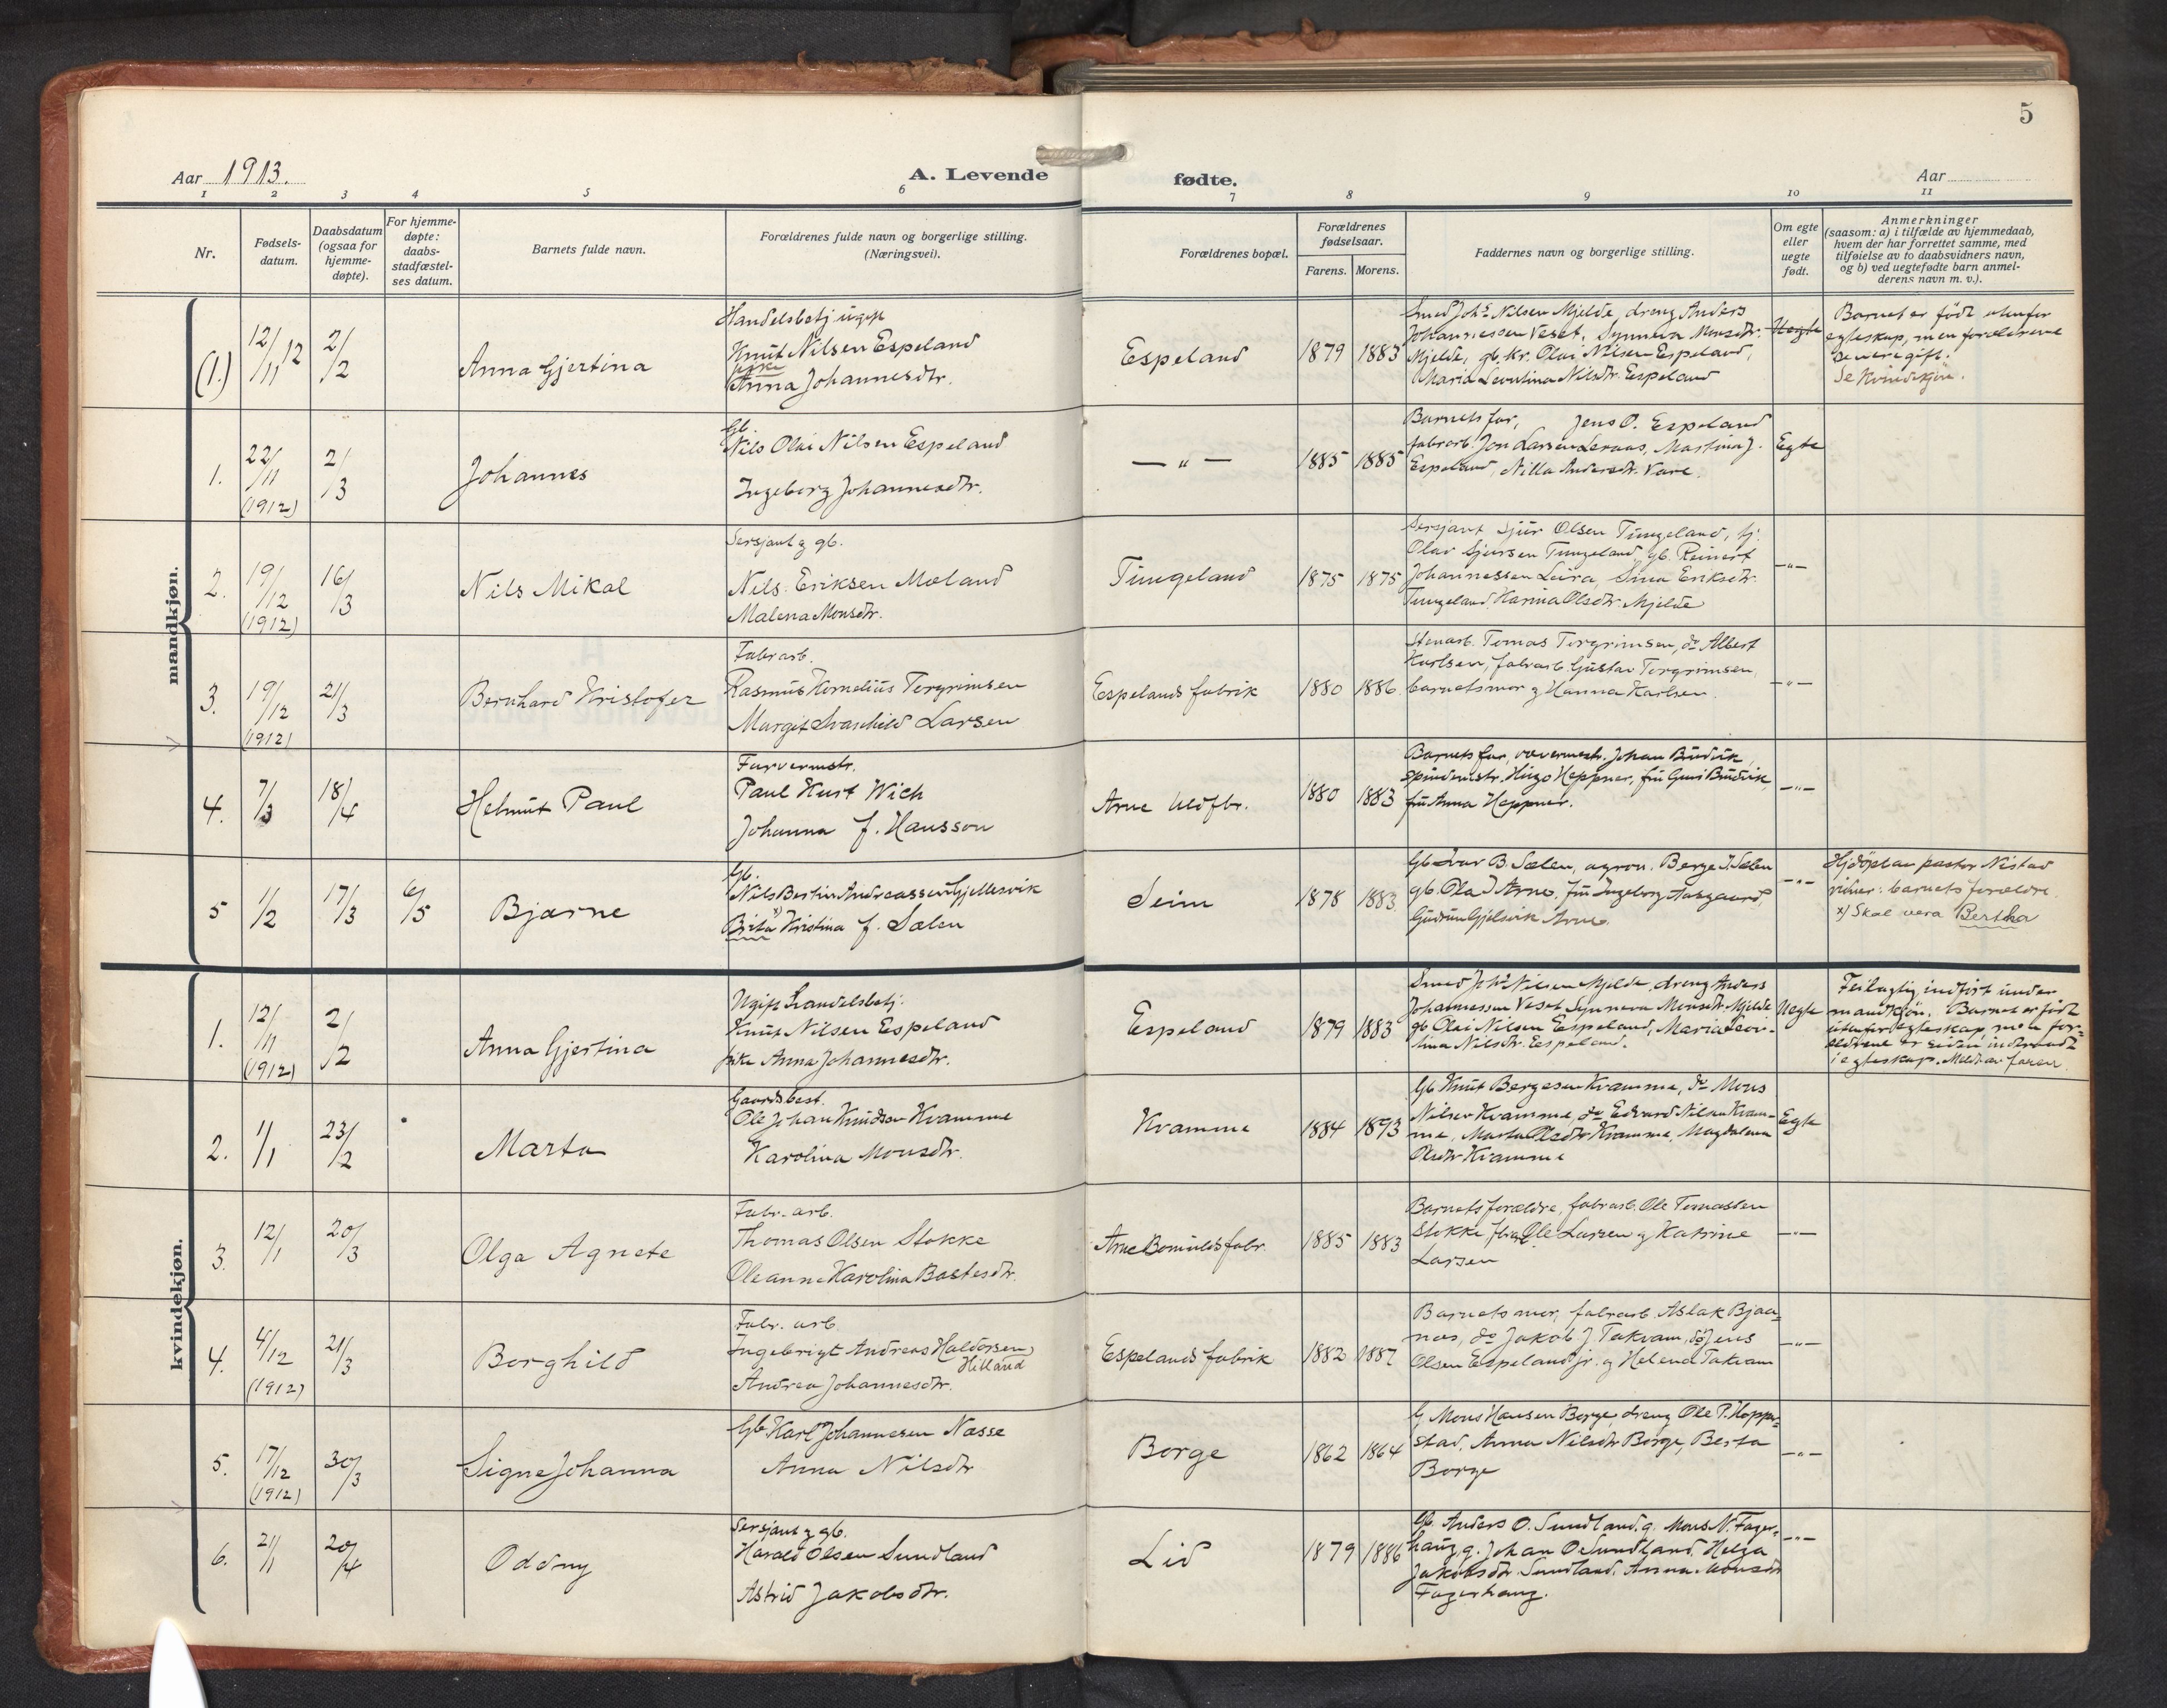 5
Aar 1913.
A. Levende
fødte.
Aar
1 2 3 4 5 6 7 8 9 10 11
Nr.
Fødsels-
datum.
Daabsdatum
(ogsaa for
hjemme-
døpte).
For hjemme-
døpte:
daabs-
stadfæstel-
ses datum.
Barnets fulde navn.
Forældrenes fulde navn og borgerlige stilling.
(Næringsvei).
Forældrenes bopæl.
Forældrenes
fødselsaar.
Farens. Morens.
Faddernes navn og borgerlige stilling.
Om egte
eller
uegte
født.
Anmerkninger
(saasom: a) i tilfælde av hjemmedaab,
hvem der har forrettet samme, med
tilføielse av to daabsvidners navn,
og b) ved uegtefødte barn anmel-
derens navn m. v.).
mandkjøn.
(1.)
12/11 12
2/2
Anna Gjertina
Handelsbetj. ugift
Knut Nilsen Espeland
pike
Anna Johannesdtr.
Espeland
1879 1883
Smed Johs Nilsen Mjelde, dreng Anders
Johannessen Veset, Synneva Monsdtr.
Mjelde, gb. kr. Olai Nilsen Espeland,
Maria Leontina Nilsdtr. Espeland
Uegte
Barnet er født utenfor
egteskap, men forældrene
senere gift.
Se Kvindekjøn.
1.
22/11
(1912)
2/3
Johannes
Gb.
Nils Olai Nilsen Espeland
Ingeborg Johannesdtr.
— " —
1885 1885
Barnets far, Jens O. Espeland
fabrarb. Jon Larsen, Martina J.
Espeland, Nilla Andersdtr.
Egte
2.
19/12
(1912)
16/3
Nils Mikal
Sersjant g gb.
Nils Eriksen Mæland
Malena Monsdtr.
Tungeland
1875 1875
Sersjant Sjur Olsen Tungeland,
Olav Sjursen Tungeland, gb. Reinert
Johannessen Leira, Sina Eriksdtr.
Tungeland, Karina Olsdtr. Mjelde
—"—
3.
19/12
(1912)
21/3
Bernhard Kristofer
Fabrarb.
Rasmus Kornelius Torgrimsen
Margit Larsen
Espelands fabrik
1880 1886
Stenarb. Tomas Torgrimsen, do Albert
Karlsen, fabrarb. Gustav Torgrimsen,
barnets mor g Hanna Karlsen.
—"—
4.
7/3
18/4
Helmut Paul
Farvermstr.
Paul Kurt Wich
Johanna f. Hansson
Arne Uldfbr.
1880 1883
Barnets far, vævermestr. Johan
spindemstr. Hugo Heppner, fru
fru Anna Heppner.
—"—
5
1/2
17/3
6/5
Bjarne
Gb.
Nils Bertin Andreassen Gjellesvik
Birta x) Kristina f. Sælen
Seim
1878 1883
Gb. Ivar B. Sælen, agron. Berge J. Sælen
gb. Ola J. Arne, fru Ingeborg Aasgaard,
Gudrun Gjelsvik Arne.
—"—
Hjdøpt av pastor Nistad
vidner: barnets forældre
x) Skal vera Bertha
kvindekjøn.
1.
12/11
(1912)
2/2
Anna Gjertina
Ugift handelsbetj.
Knut Nilsen Espeland
pike Anna Johannesdtr.
Espeland
1879 1883
Smed Johs Nilsen Mjelde, dreng Anders
Johannessen Veset, Synneva Monsdtr. Mjelde
gb Olai Nilsen Espeland, Maria Leon-
tina Nilsdtr. Espeland.
Uegte
Feilagtig indført under
mandkjøn. Barnet er født
utenfor egteskap, men for-
ældrene er siden indtraadt
i egteskap. Meldt av faren.
2.
1/1
23/2
Marta
Gaardsbest.
Ole Johan Knudsen Kvamme
Karolina Monsdtr.
Kvamme
1884 1893
Gb Knut Bergesen Kvamme, do Mons
Nilsen Kvamme, do Edvard Nilsen Kvam-
me, Marta Olsdtr Kvamme, Magdalena
Olsdtr Kvamme
Egte
3.
12/1
20/3
Olga Agnete
Fabr. arb.
Thomas Olsen Stokke
Oleanna Karolina Bastesdtr.
Arne Bomuldsfabr.
1885 1883
Barnets forældre, fabrarb. Ole Tomassen
Stokke, Ole Larsen g Katrine
Larsen
—"—
4.
4/12
(1912)
21/3
Borghild
Fabr. arb.
Ingebrigt Andreas Haldorsen
Hilland
Andrea Johannesdtr.
Espelands fabrik
1882 1887
Barnets mor, fabrarb. Aslak Bjaa-
næs, do Jakob J. Takvam, do Jens
Olsen Espeland jr. g Helena Takvam
—"—
5.
17/12
(1912)
30/3
Signe Johanna
Gb Karl Johannesen Næsse
Anna Nilsdtr
Borge
1862 1864
G Mons Hansen Borge, dreng Ole P. Hoppe-
stad, Anna Nilsdtr Borge, Berta
Borge
—"—
6.
21/1
20/4
Oddny
Sersjant g gb.
Harald Olsen Sundland
Astrid Jakobsdtr.
Lid
1879 1886
Gb. Anders O. Sundland, g. Mons N. Fager-
haug, g. Johan O Sundland, Helga
Jakobsdtr. Sundland, Anna Monsdtr
Fagerhaug.
—"—